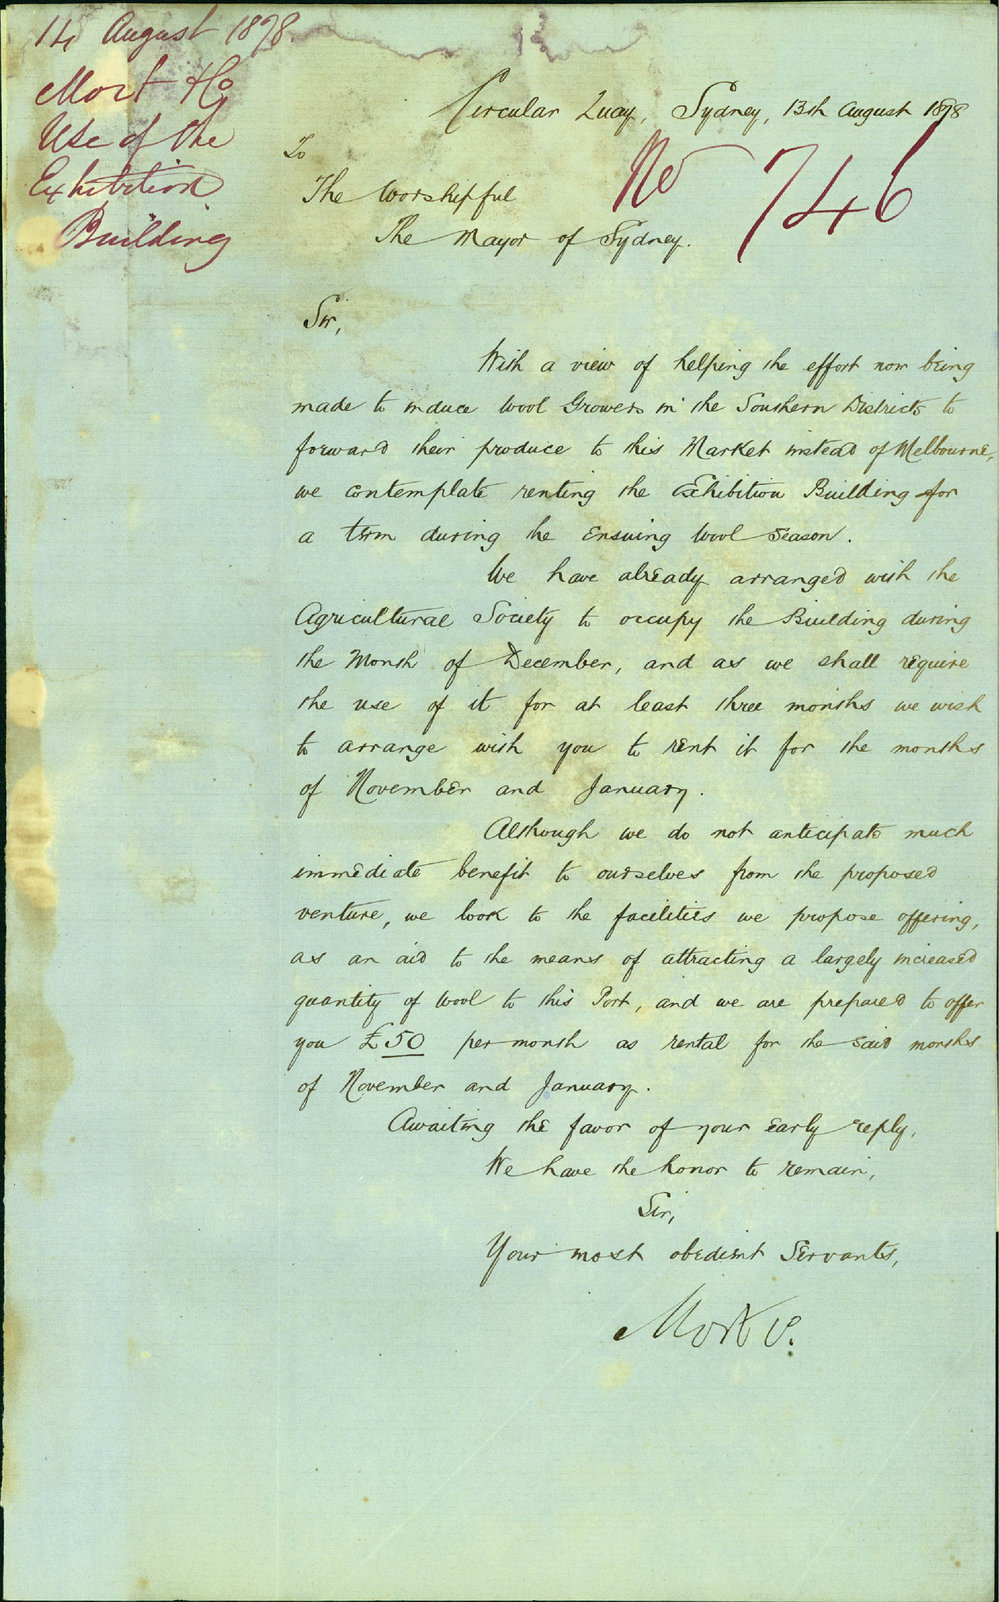 14 August 1878.
Mort & Co
Use of the
Exhibition
Building
Circular Quay, Sydney, 13th August 1878
No 746
To
The Worshipful
The Mayor of Sydney.
Sir,
With a view of helping the effort now being
made to induce Wool Growers in the Southern Districts to
forward their produce to this Market instead of Melbourne,
we contemplate renting the Exhibition Building for
a term during the ensuing Wool Season.
We have already arranged with the
Agricultural Society to occupy the Building during
the Month of December, and as we shall require
the use of it for at least three months we wish
to arrange with you to rent it for the months
of November and January.
Although we do not anticipate much
immediate benefit to ourselves from the proposed
venture, we look to the facilities we propose offering,
as an aid to the means of attracting a largely increased
quantity of Wool to this Port, and we are prepared to offer
you £50 per month as rental for the said months
of November and January.
Awaiting the favor of your early reply,
We have the honor to remain,
Sir,
Your most obedient Servants,
Mort & Co.